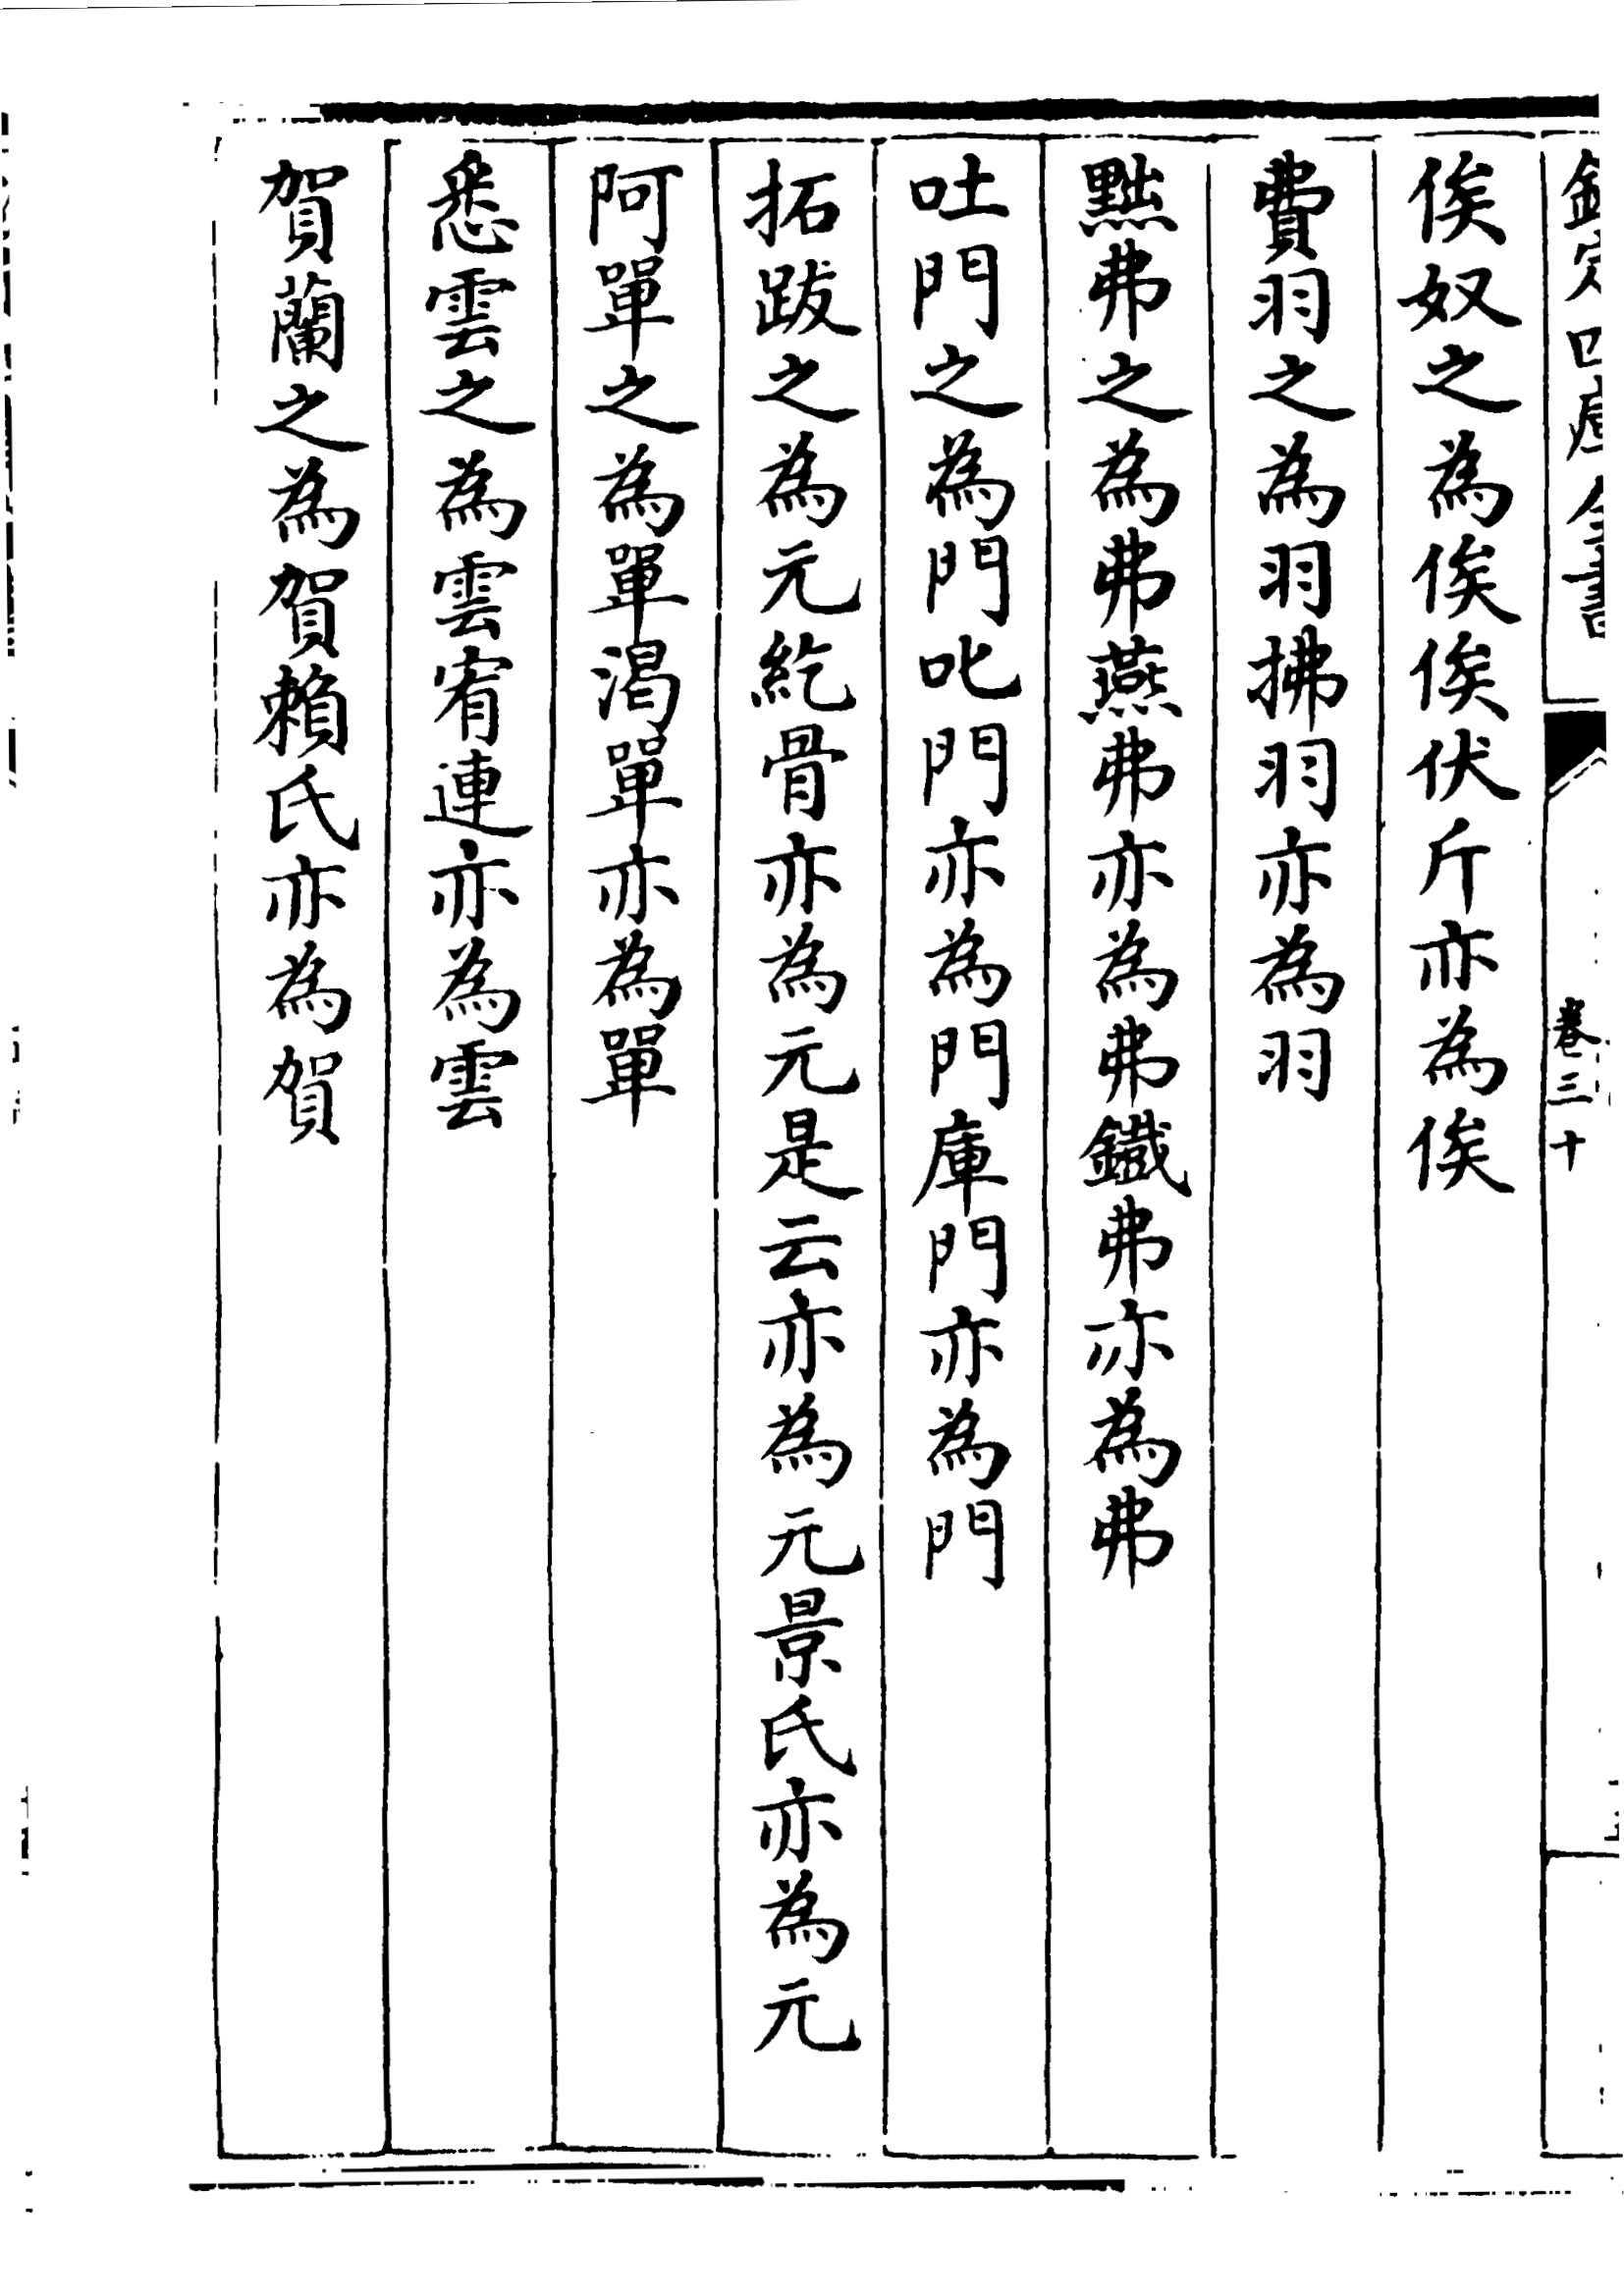 欽定四庫全書 卷三十
俟奴之為俟俟伏斤亦為俟
費羽之為羽拂羽亦為羽
黜弗之為弗燕弗亦為弗鐵弗亦為弗
吐門之為門叱門亦為門庫門亦為門
拓跋之為元紇骨亦為元是云亦為元景氏亦為元
阿單之為單渴單亦為單
悉雲之為雲宥連亦為雲
賀蘭之為賀賴氏亦為賀